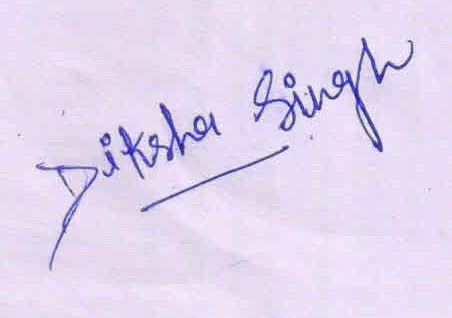 Diksha Singh